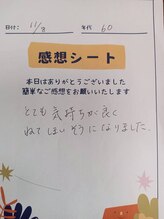 日付: 11/8 年代: 60
感想シート
本日はありがとうございました
簡単なご感想をお願いいたします
とても気持ちが良く
ねてしまいそうになりました。